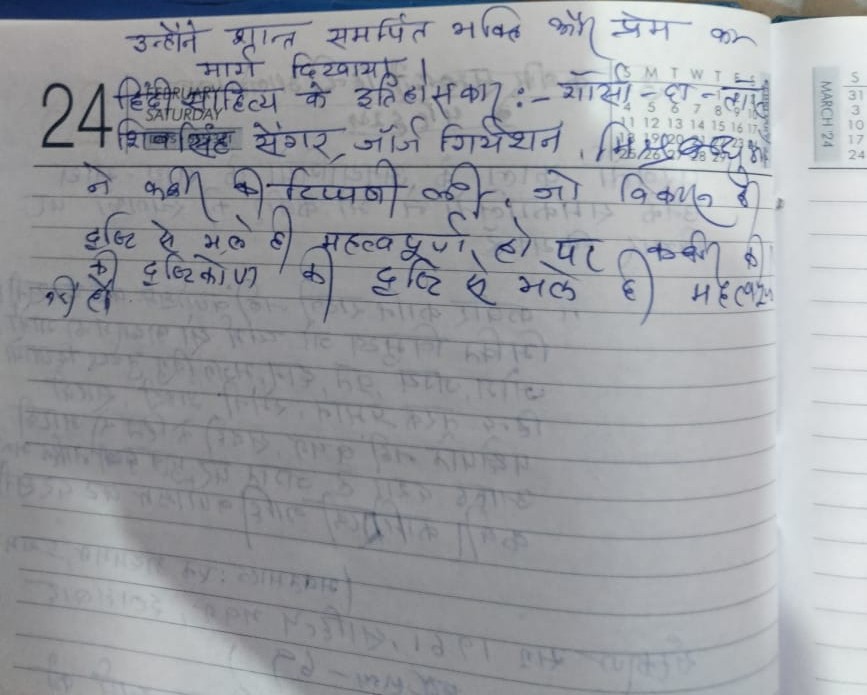 उन्होंने शान्त समर्पित भक्ति और प्रेम का
मार्ग दिखाया।
24 FEBRUARY
SATURDAY
हिंदी साहित्य के इतिहासकार :- गार्सा-दा-तासी
S M T W T F S
4 5 6 7 8 9 10
11 12 13 14 15 16 17
शिव सिंह सेंगर, जॉर्ज ग्रियर्शन,
18 19 20 21 22 23 24
25 26 27 28 29
ने कबीर की टिप्पणी की, जो विकास की
दृष्टि से भले ही महत्वपूर्ण हो पर कबीर की
की दृष्टिकोण की दृष्टि से भले ही महत्वपूर्ण
नहीं हो
MARCH '24
S
31
3
10
17
24